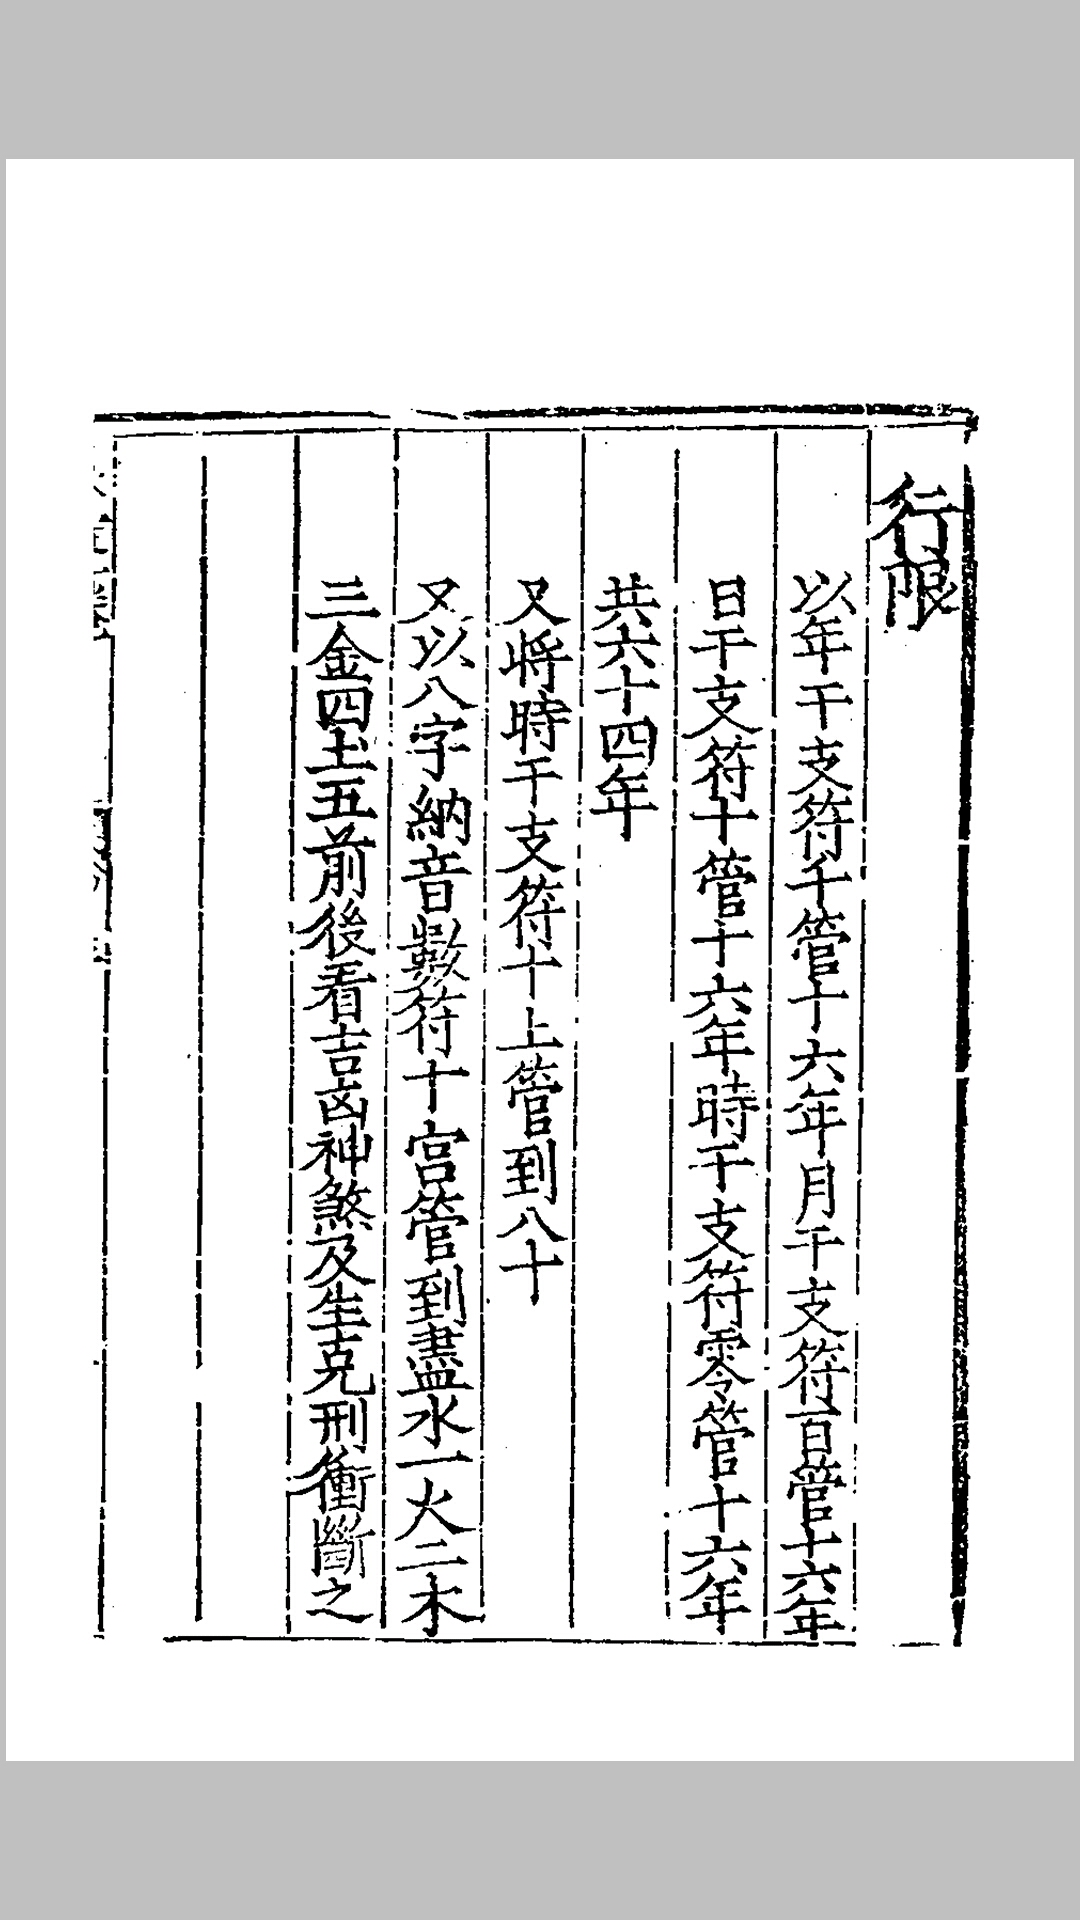 行限
以年干支符千管十六年月干支符百管十六年
日干支符十管十六年時干支符零管十六年
共六十四年
又將時干支符十上管到八十
又以八字納音數符十宮管到盡水一火二木
三金四土五前後看吉凶神煞及生克刑衝斷之